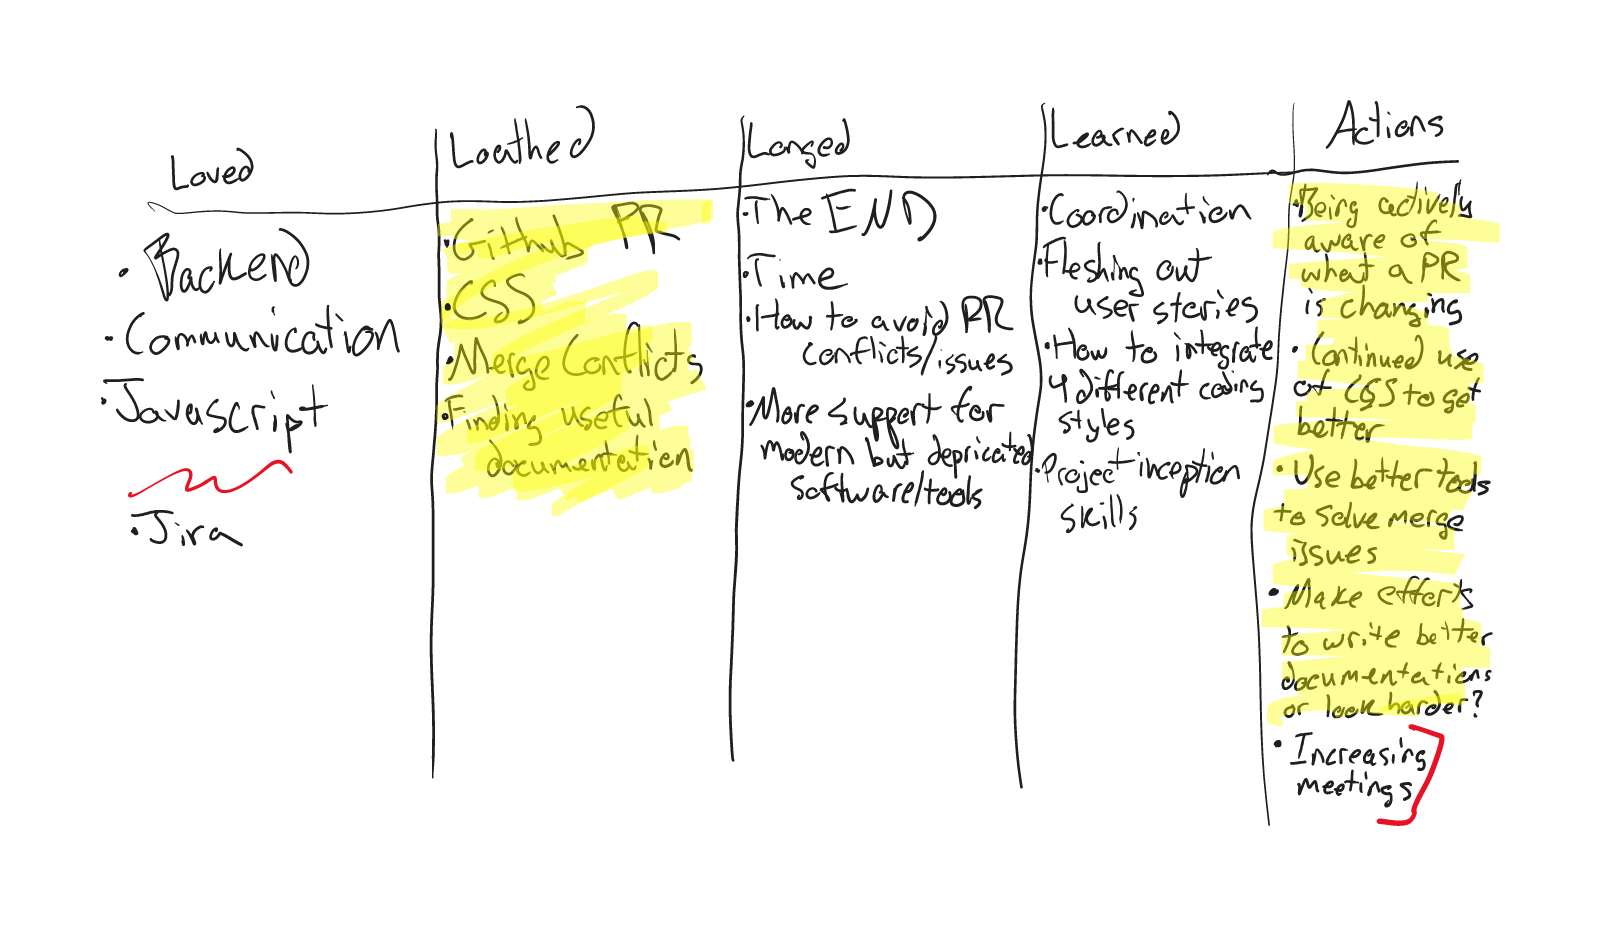 Loved
• Backend
• Communication
• Javascript
• Jira
Loathed
• Github PR
• CSS
• Merge Conflicts
• Finding useful
documentation
Longed
• The END
• Time
• How to avoid PR
conflicts/issues
• More support for
modern but depricated
software/tools
Learned
• Coordination
• Fleshing out
user stories
• How to integrate
4 different coding
styles
• Project inception
skills
Actions
• Being actively
aware of
what a PR
is changing
• Continued use
of CSS to get
better
• Use better tools
to solve merge
issues
• Make efforts
to write better
documentations
or look harder?
• Increasing
meetings